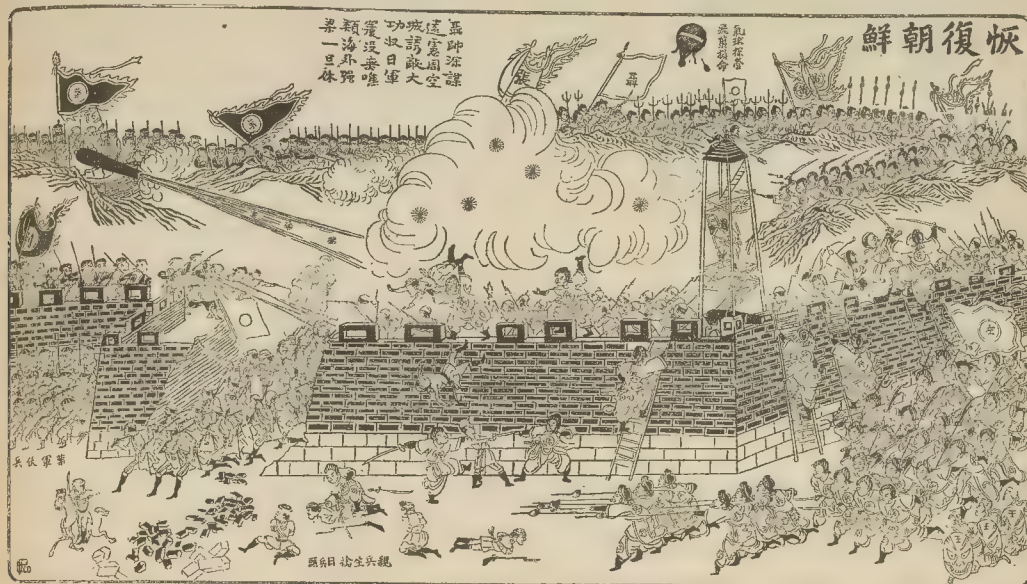 恢復朝鮮
氣球探營
聶帥深謀
遠慮周空
城誘敵大
功收日軍
覆没無噍
類海外強
梁一旦休
聶
葉軍伏兵
親兵生擒日兵頭